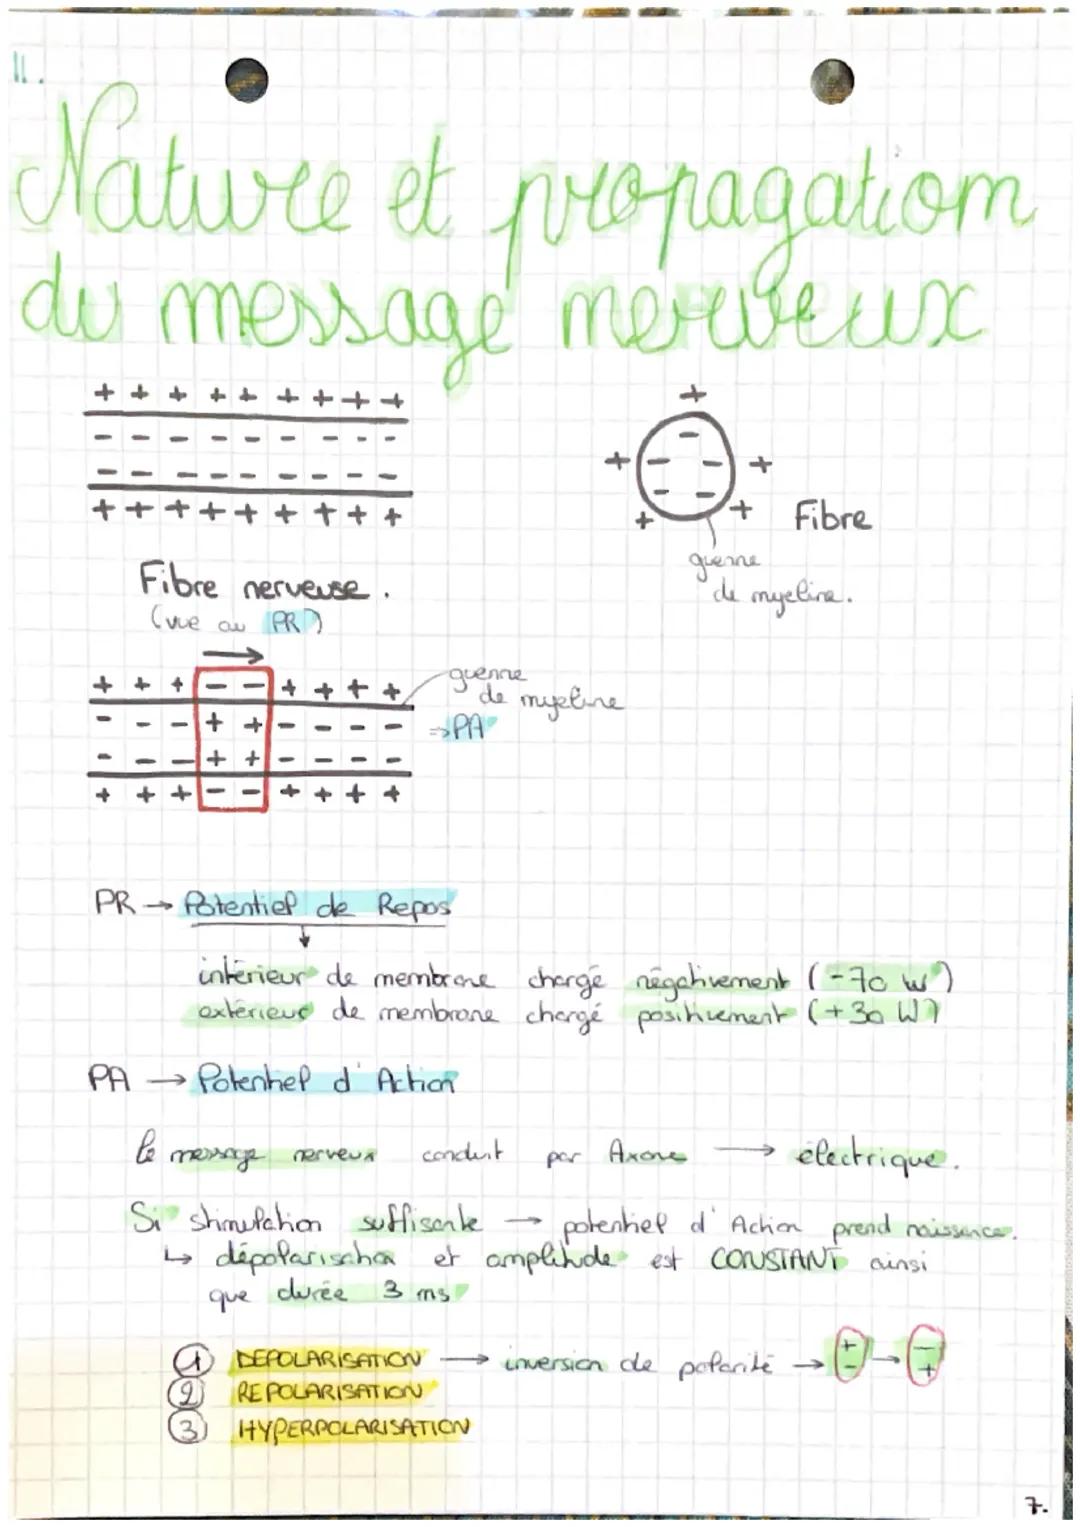 II.
Nature et propagation
du message nerveux
+ + + + + + + + +
- - - - - - - - -
- - - - - - - - -
+ + + + + + + + +
+
-
+ - - +
- -
+ + Fibre
guenne
de myeline.
Fibre nerveuse.
(vue au PR)
→
+ + + - - + + + +
guenne
de myeline
- - - + + - - - -
⇒ PA
- - - + + - - - -
+ + + - - + + + +
PR → Potentiel de Repos
↓
intérieur de membrane chargé négativement (-70 W)
extérieur de membrane chargé positivement (+30 W)
PA → Potentiel d'Action
le message nerveux conduit par Axone → électrique.
Si stimulation suffisante → potentiel d'Action prend naissance.
↳ dépolarisation et amplitude est CONSTANT ainsi
que durée 3 ms
1 DEPOLARISATION → inversion de polarité → + - → - +
2 REPOLARISATION
3 HYPERPOLARISATION
7.